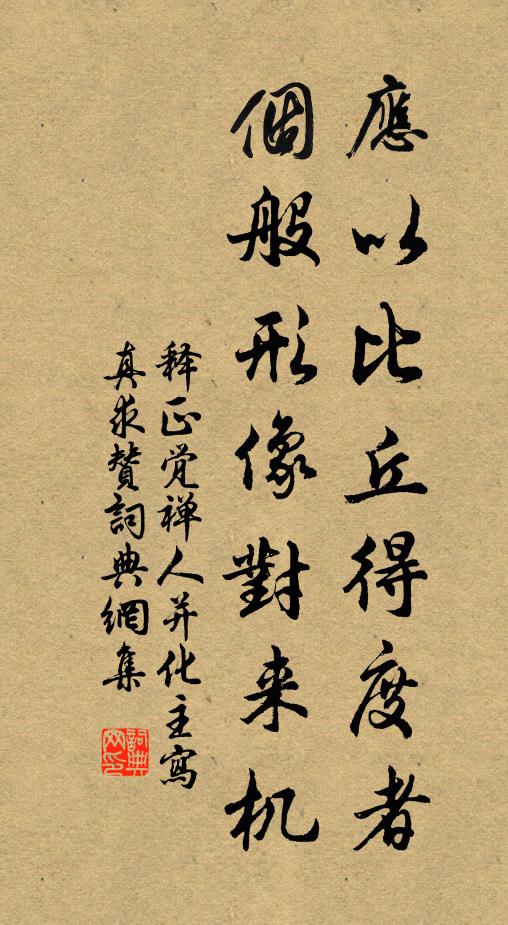 應以比丘得度者
個般形像對来机
释正觉禅人并化主寫
真求贊詞典網集
詞典網